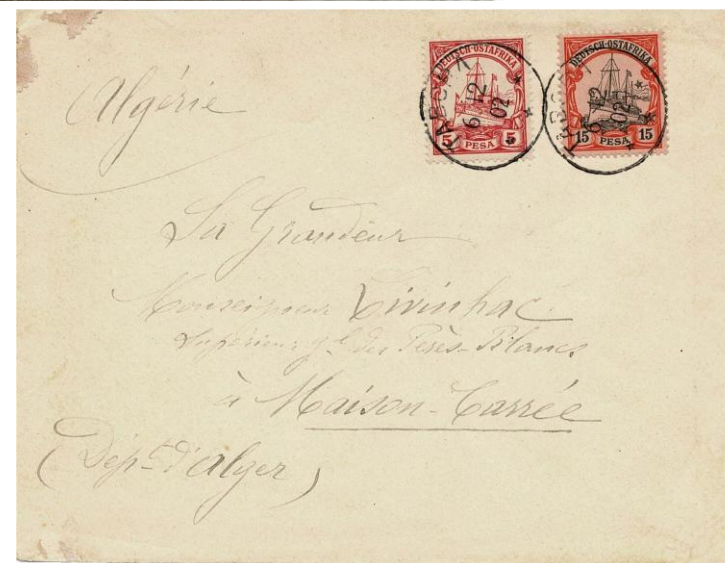 DEUTSCH-OSTAFRIKA
5 PESA 5
DEUTSCH-OSTAFRIKA
15 PESA 15
TABORA
6 12
02
TABORA
6 12
02
Algérie
Sa Grandeur
Monseigneur Livinhac
Supérieur gl des Pères-Blancs
à Maison-Carrée
(Dépt d'Alger)